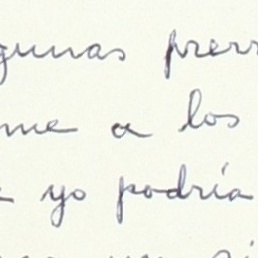 gunas prer
me a los
yo podría